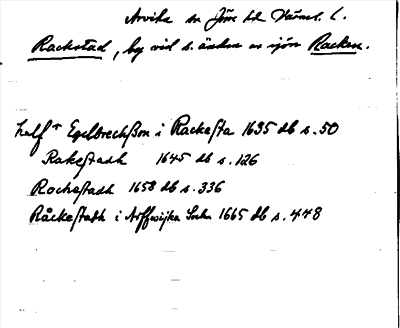 Arvika sn Jösse hd Värml. l.
Rackstad, by vid s. ändan av sjön Racken.
Engelbrechtßon i Rackesta 1635 db s. 50
Rakestadh 1645 db s. 126
Rochestadh 1658 db s. 336
Råckestadh i Arffwijka Sochn 1665 db s. 448